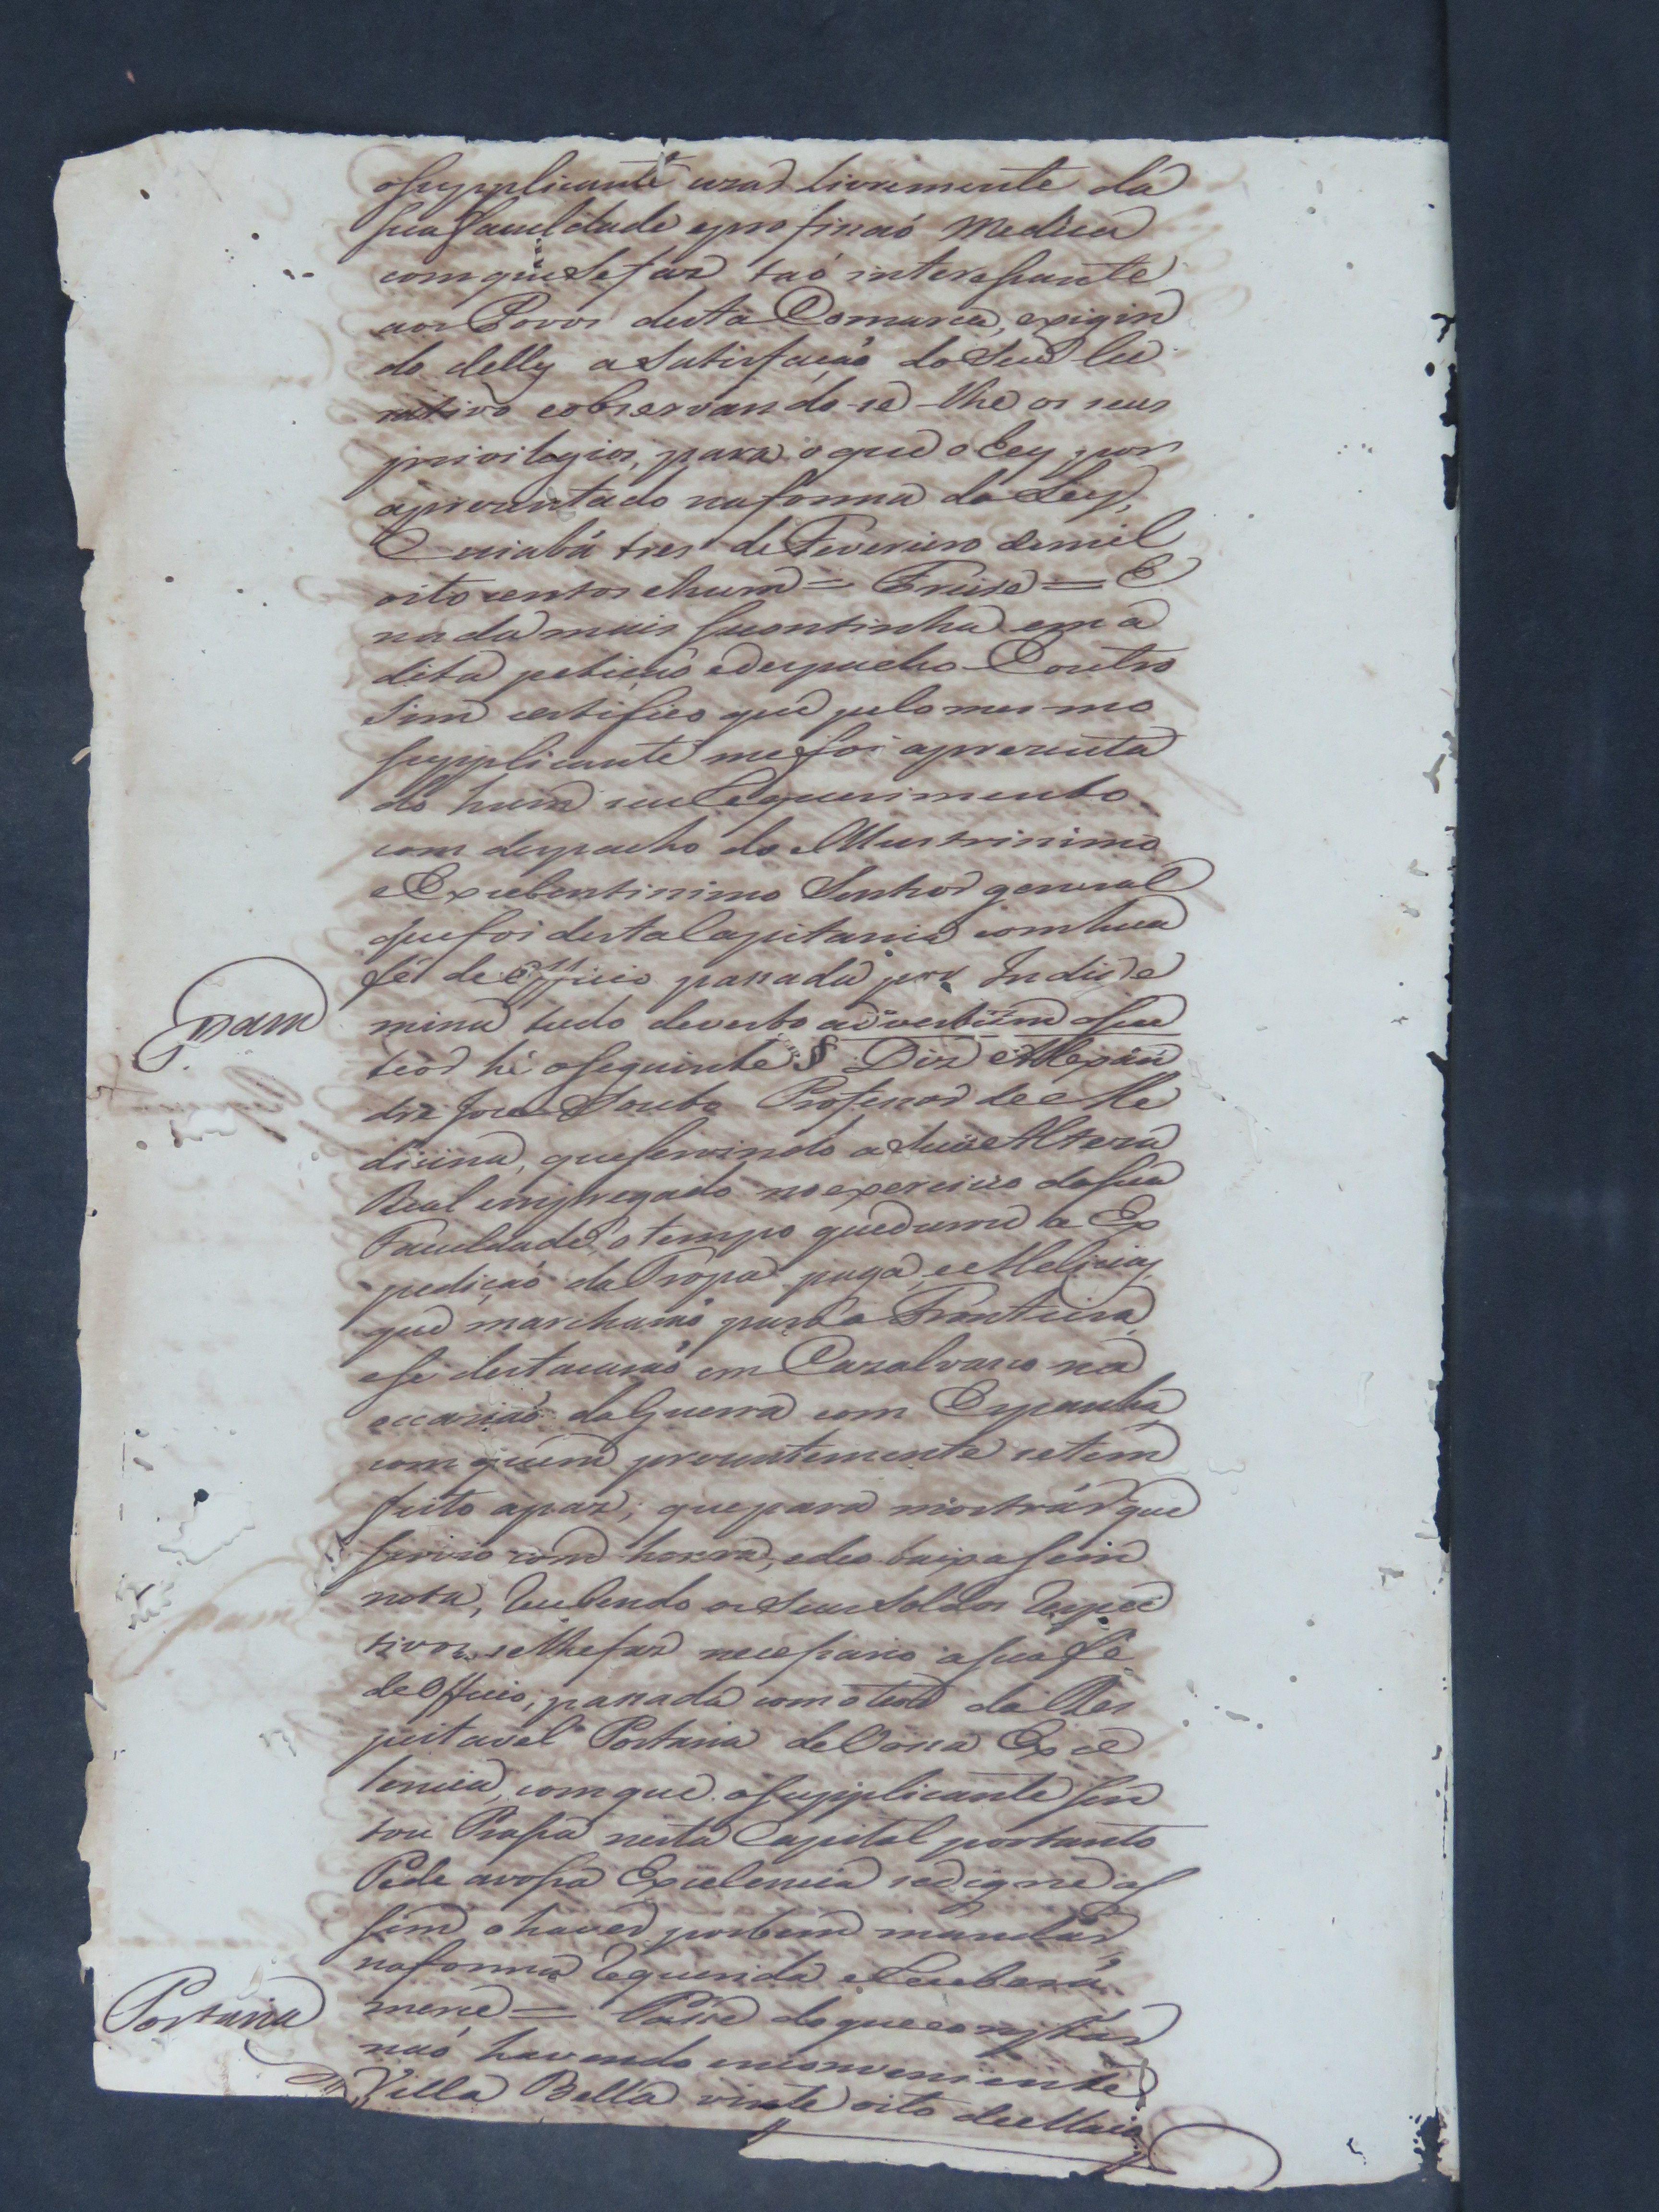 oSupplicante uzar livremente da
Sua Faculdade eprofissaõ Medica
comque sefaz taõ interessante
aos Povos desta Comarca, exigin
do delles a Satisfaçaõ do Seu lu
crativo eobservando-se-lhe os seus
privilegios, para o que o hey por
aprezentado naforma da Ley,
Cuiabá tres de Fevereiro demil
oito centos ehum = Freire = E
nada mais Secontinha em a
dita petiçaõ edespacho Eoutro
Sim certifico que pelo mesmo
Supplicante mefoi aprezenta
do hum seu Requerimento
com despacho do Illustrissimo
eExcelentissimo Senhor general
quefoi destaCapitania comhua
fé de Officio passada por
tudo deverbo adverbum oSeu
teor hé oSeguinte § Diz Alexan
dre Joze Souto Professor de Me
dicina, queServindo aSua Alteza
Real empregado noexercicio daSua
Faculdade, o tempo quedurou a Ex
pediçaõ da Tropa paga, eMelicias
que marcharaõ para a Fronteira
ese destacaraõ em Cazalvasco na
occasiaõ da Guerra com Espanha
comquem prezentemente setem
feito apaz; quepara mostrar que
Servio com honra, edeo baixa Sem
nota, Recebendo os Seus Soldos Respec
tivos, selhefaz necessario aSua fé
de Officio, passada com o teor da Res
peitavel Portaria deVossa Exce
lencia, comque oSupplicante Sen
tou Prassa nesta Capital portanto
Pede avossa Excelencia sedigne as
sim ohaver porbem mandar
naforma Requerida eReceberá
merce = Passe doqueconstar
naõ havendo inconveniente
Villa Bella vinte oito deMaio
Portaria